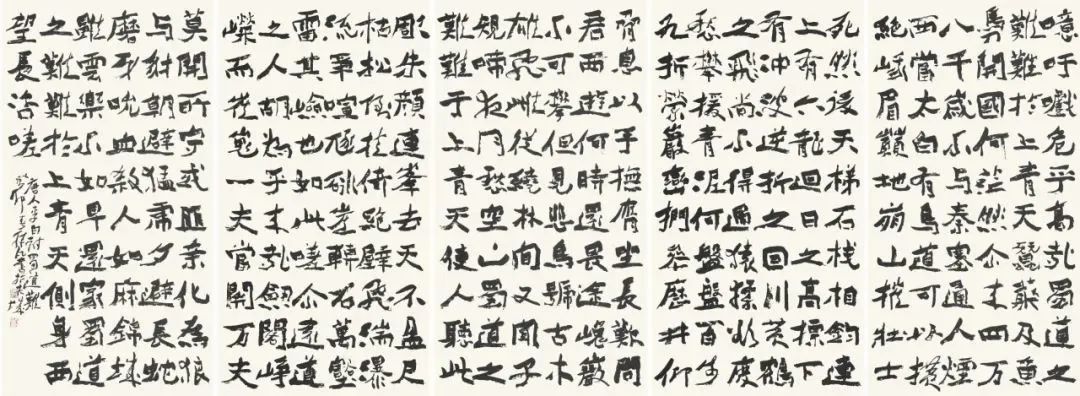 噫吁嚱危乎高哉蜀道之
難難於上青天蠶叢及魚
鳧開國何茫然尒來四萬
八千歲不与秦塞通人煙
西當太白有鳥道可以橫
絕峨眉巔地崩山摧壯士
死然後天梯石棧相鉤連
上有六龍迴日之高標下
有沖波逆折之回川黃鶴
之飛尚不得過猿猱欲度
愁攀援青泥何盤盤百步
九折縈巖巒捫參歷井仰
脅息以手撫膺坐長歎問
君西遊何時還畏途巉巖
不可攀但見悲鳥號古木
雄飛雌從繞林間又聞子
規啼夜月愁空山蜀道之
難難于上青天使人聽此
凋朱顏連峯去天不盈尺
枯松倒挂倚絕壁飛湍瀑
流爭喧豗砯崖轉石萬壑
雷其險也如此嗟尒遠道
之人胡為乎來哉劍閣崢
嶸而崔嵬一夫當關萬夫
莫開所守或匪親化為狼
与豺朝避猛虎夕避長蛇
磨牙吮血殺人如麻錦城
雖雲樂不如早還家蜀道
之難難於上青天側身西
望長咨嗟
唐人李白詩蜀道難
癸卯